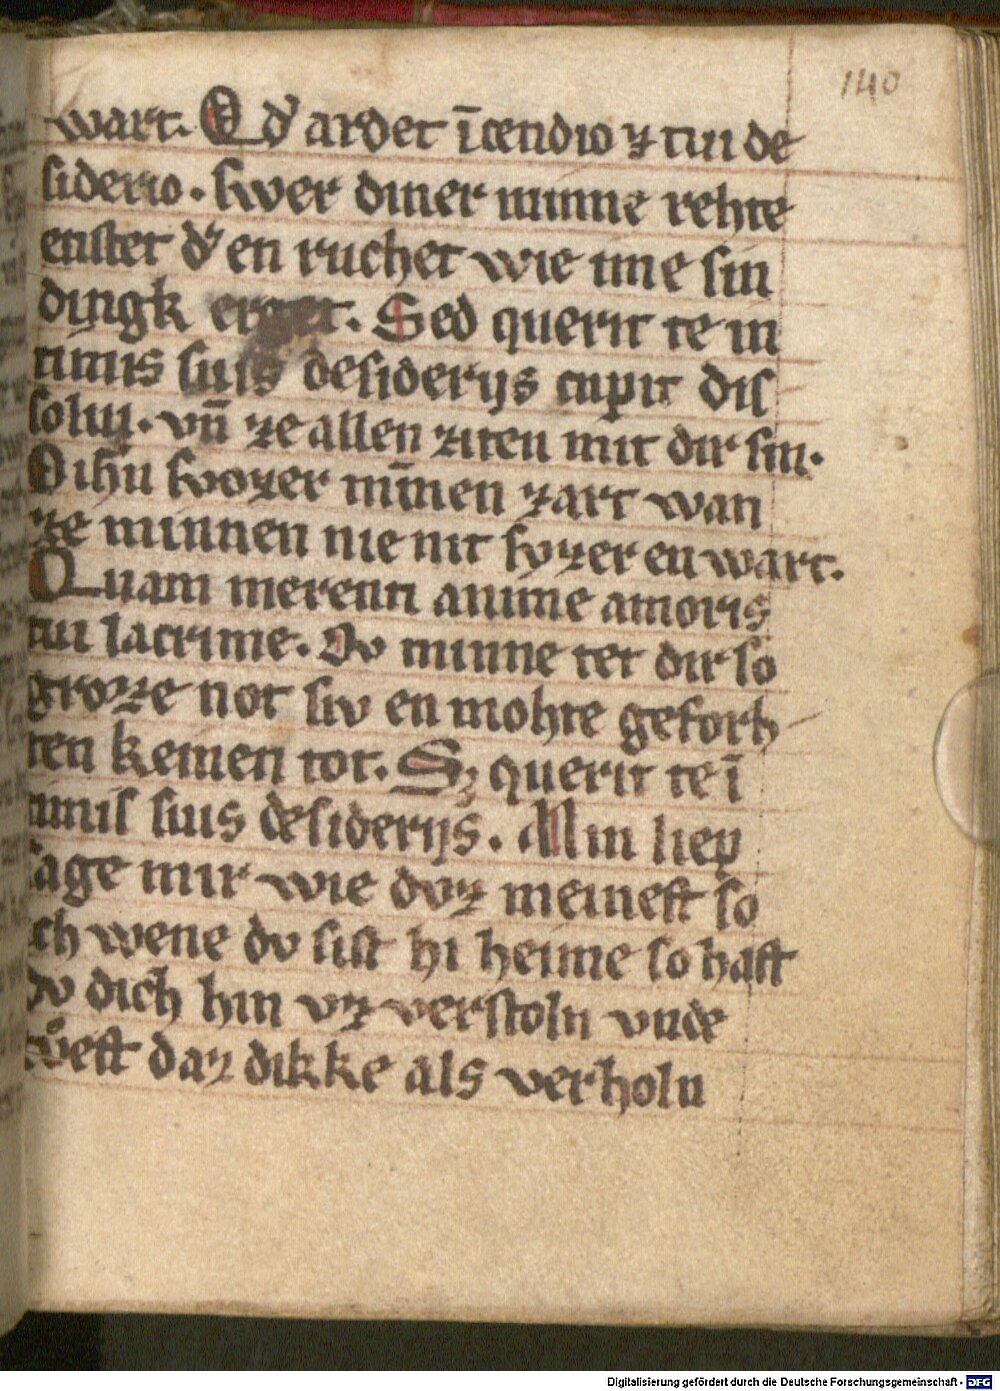 140
wart. Q d' ardet īcendio ⁊ tui de
siderio. swer diner minne rehte
enstet d' en ruchet wie ime sin
dingk erget. Sed querit te in
timis suis desiderijs cupit dis
solui. vn̄ ze allen ziten mit dir sin.
O ihū svozer mīnen zart wan
ze minnen nie nit svzer en wart.
Quam merenti anime amoris
tui lacrime. Dv minne tet dir so
groze not siv en mohte geforh
ten keinen tot. Sꝫ querit te ī
timis suis desiderijs. Min liep
sage mir wie dvz meinest so
ich wene dv sist hi heime so hast
dv dich hin vz verstoln vnde
tvͦest daz dikke als verholn
Digitalisierung gefördert durch die Deutsche Forschungsgemeinschaft - DFG